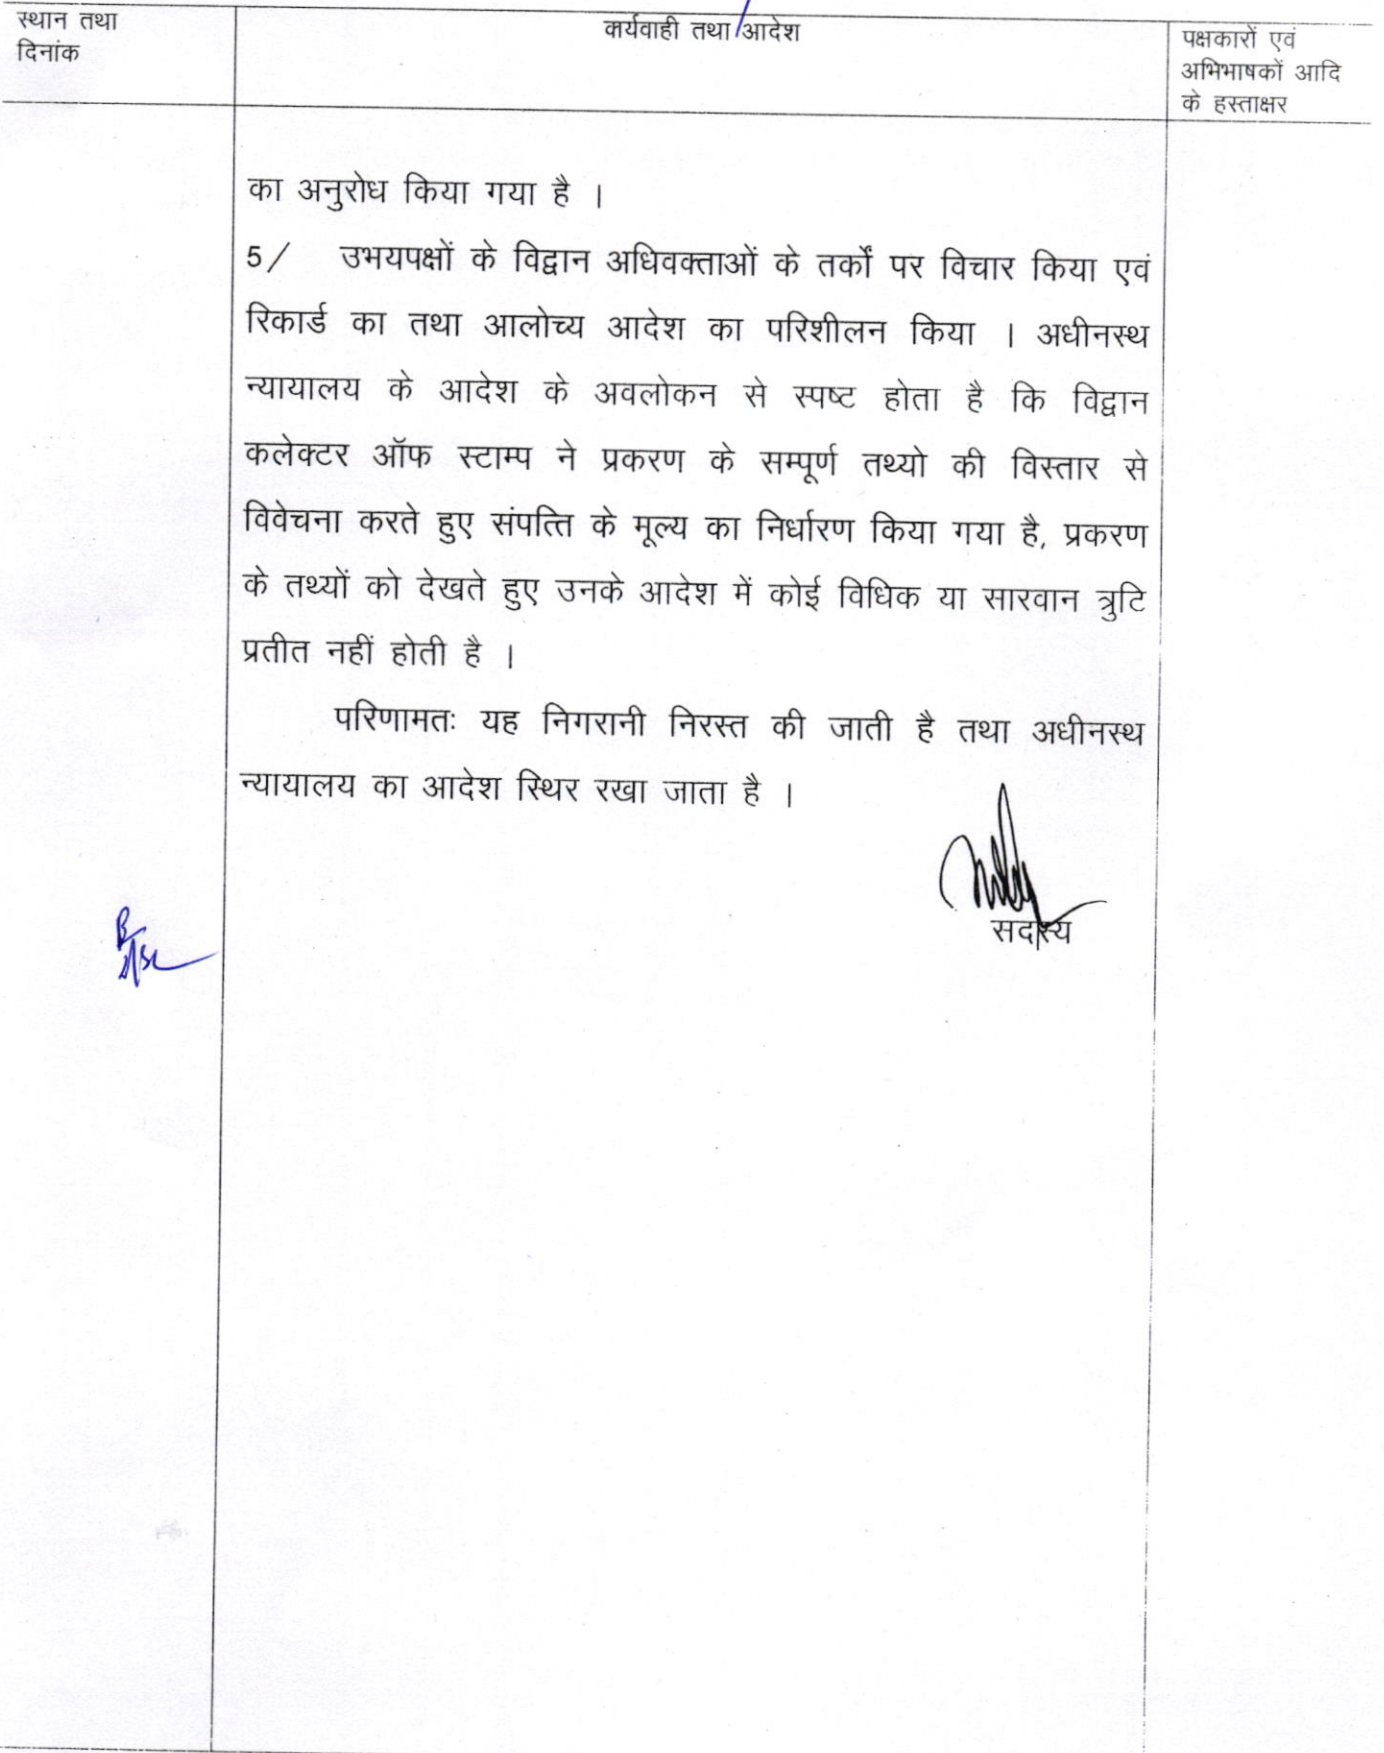 स्थान तथा
दिनांक
कार्यवाही तथा आदेश
पक्षकारों एवं
अभिभाषकों आदि
के हस्ताक्षर
का अनुरोध किया गया है ।
5/ उभयपक्षों के विद्वान अधिवक्ताओं के तर्कों पर विचार किया एवं
रिकार्ड का तथा आलोच्य आदेश का परिशीलन किया । अधीनस्थ
न्यायालय के आदेश के अवलोकन से स्पष्ट होता है कि विद्वान
कलेक्टर ऑफ स्टाम्प ने प्रकरण के सम्पूर्ण तथ्यो की विस्तार से
विवेचना करते हुए संपत्ति के मूल्य का निर्धारण किया गया है, प्रकरण
के तथ्यों को देखते हुए उनके आदेश में कोई विधिक या सारवान त्रुटि
प्रतीत नहीं होती है ।
परिणामतः यह निगरानी निरस्त की जाती है तथा अधीनस्थ
न्यायालय का आदेश स्थिर रखा जाता है ।
सदस्य